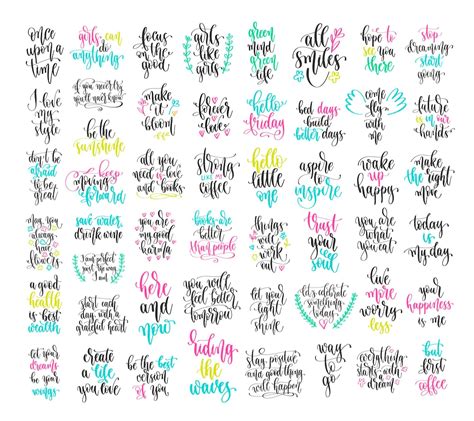 once
upon a
time
girls can
do
anything
focus
on the
good
girls
like
girls
green
mind
green
life
all
smiles
hope
to see
you
there
stop
dreaming
start
going
I love
my
style
if you never try
you'll never know
make
it
bloom
forever
love
hello
friday
bad days
build
better days
come
fly
with
me
future
is in
our
hands
be the
sunshine
don't be
afraid
to be
great
keep
moving
forward
all you
need is
love
and books
strong
like my
coffee
hello
little
one
aspire
to
inspire
wake
up
happy
make
the right
move
may you
always
have
save water
drink wine
I am perfect
just the way
I am
you
are my
good
karma
books are
better
than people
things
will
work
out
trust
your
soul
you are
what
you
eat
today
is
my day
a good
health
is best
wealth
start each
day with a
grateful heart
here
and
now
you will
feel better
tomorrow
let your
light
shine
let's celebrate
something
today
love
more
worry
less
your
happiness
is me
let your
dreams
be your
wings
create
a life
you love
be the best
version of
you
riding
the
waves
stay positive
and good things
will happen
way
to
go
everything
starts with
a dream
but
first
coffee